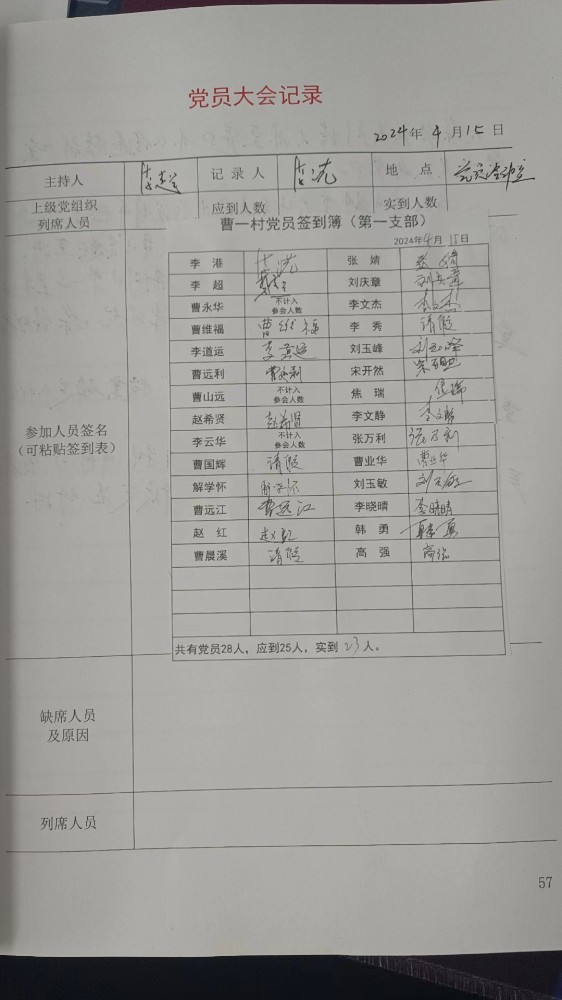 党员大会记录
2024年4月15日
主持人 李超 记录人 李港 地点 党员活动室
上级党组织列席人员 应到人数 实到人数
曹一村党员签到簿（第一支部）
2024年4月15日
李港 李港 张婧 张婧
李超 李超 刘庆章 刘庆章
曹永华 不计入参会人数 李文杰 李文杰
曹维福 曹维福 李秀 请假
李道运 李道运 刘玉峰 刘玉峰
曹远利 曹远利 宋开然 宋开然
曹山远 不计入参会人数 焦瑞 焦瑞
赵希贤 赵希贤 李文静 李文静
李云华 不计入参会人数 张万利 张万利
曹国辉 请假 曹业华 曹业华
解学怀 解学怀 刘玉敏 刘玉敏
曹远江 曹远江 李晓晴 李晓晴
赵红 赵红 韩勇 韩勇
曹晨溪 请假 高强 高强
共有党员28人，应到25人，实到23人。
参加人员签名
（可粘贴签到表）
缺席人员
及原因
列席人员
57